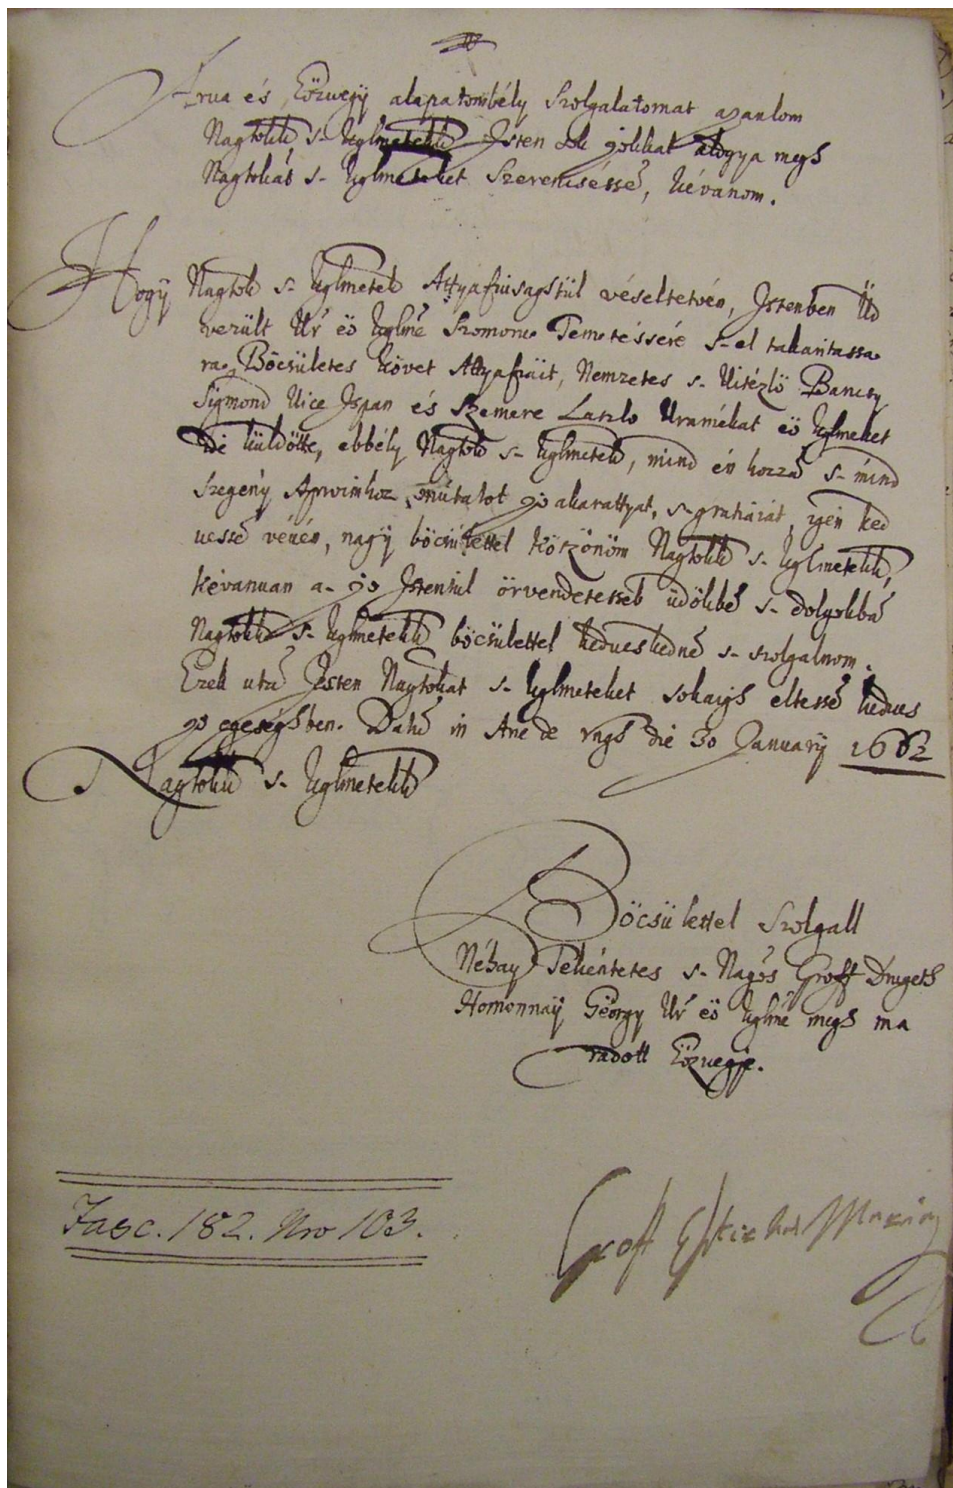 Arua és Eözuegÿ alapatombély Szolgalatomat ajanlom
Nagtokk s- kglmetekk Isten sok jokkal áldgya megh
Nagtokat s- kglmeteket Szerencséssé, kévanom.
Hogÿ Nagtok s- kglmetek Attyafiusagstül viseltetvén, Istenben Üd
vezült Úr eö kglme Szomorue Temetésséré s- el takaritassa
ra, Böcsületes követ Attyafiait, Nemzetes s- Uitézlö
Sigmond Uice Ispan és Szemere Laszlo Uramékat eö kglmeket
ide küldötte, ebbély Nagtok s- kglmetek, mind én hozzá s- mind
Szegény Aproimhoz mútatot jo akarattyat, s- igen ked
uessé vévén, nagÿ böcsülettel köszönöm Nagtokk s- kglmetekk,
kévanuan a- jo Istentül örvendetesseb üdökbé s- dolgokba
Nagtokk s- kglmetekk böcsülettel kedueskedné s- szolgalnom.
Ezek uta Isten Nagtokat s- kglmeteket sokaigh eltessé kedues
jo egeségben. Datu in Arce de die 30 Januarÿ 1662
Nagtokk s- kglmetekk
Böcsülettel Szolgall
Néhay Tekéntetes s- Nagos Groff Drugeth
Homonnaÿ György Úr eö kglme megh ma
radott Eözuegje.
Fasc. 182. Nro 103.
Groff Maria